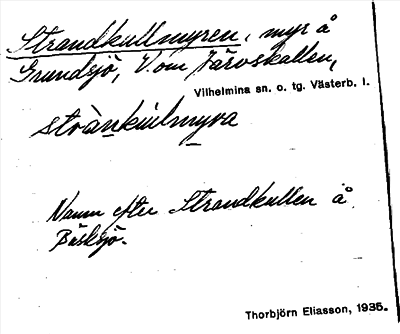 Strandkullmyren, myr å
Grundsjö, V. om Järvskallen,
Vilhelmina sn. o. tg. Västerb. l.
strànkulmyra
Namn efter Strandkullen å
Bäsksjö.
Thorbjörn Eliasson, 1935.